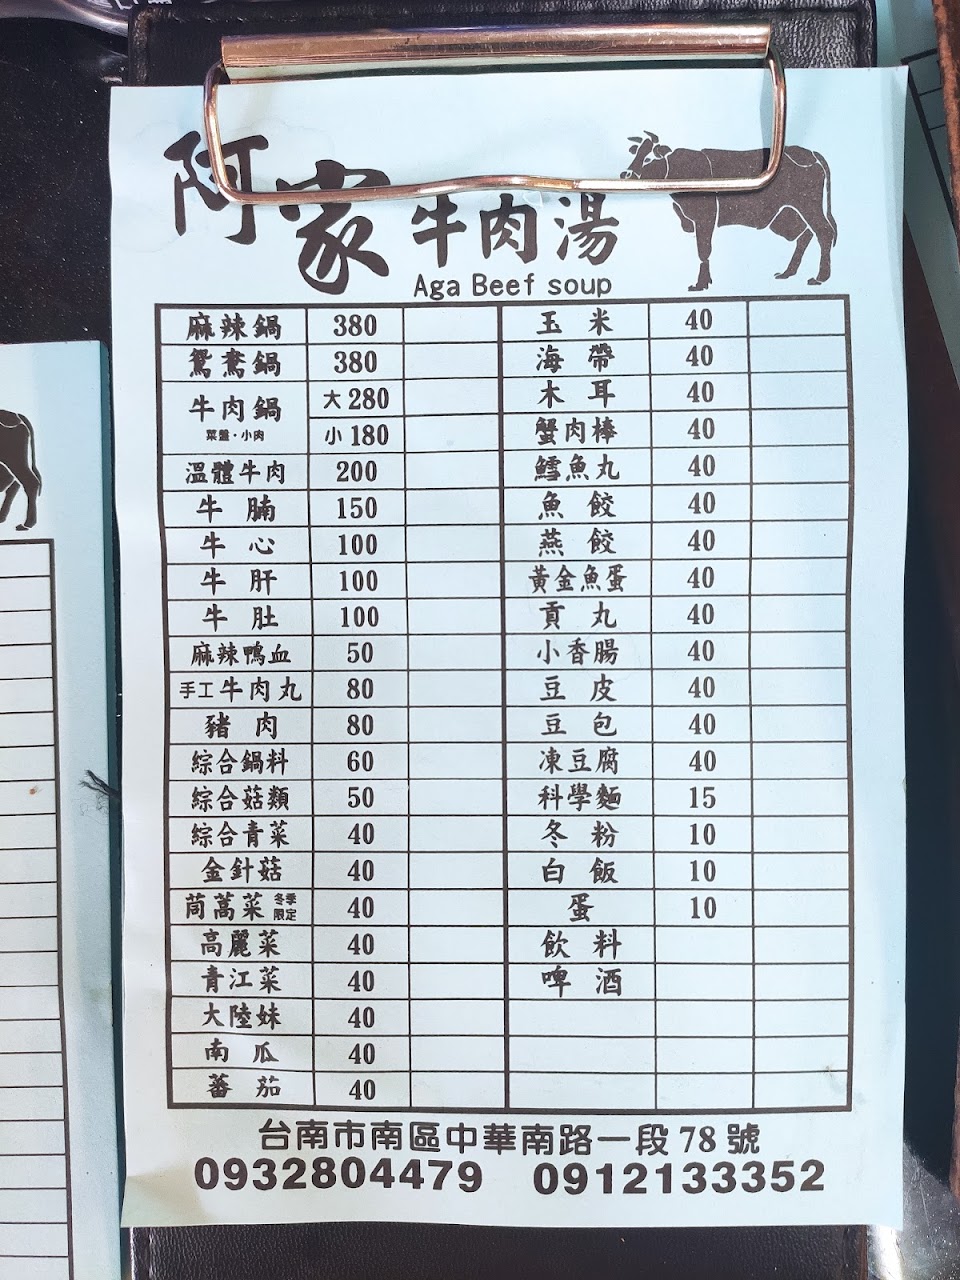 阿家牛肉湯
Aga Beef soup
麻辣鍋 380
鴛鴦鍋 380
牛肉鍋 大280
菜盤·小肉 小180
溫體牛肉 200
牛腩 150
牛心 100
牛肝 100
牛肚 100
麻辣鴨血 50
手工牛肉丸 80
豬肉 80
綜合鍋料 60
綜合菇類 50
綜合青菜 40
金針菇 40
茼蒿菜 冬季限定 40
高麗菜 40
青江菜 40
大陸妹 40
南瓜 40
蕃茄 40
玉米 40
海帶 40
木耳 40
蟹肉棒 40
鱈魚丸 40
魚餃 40
燕餃 40
黃金魚蛋 40
貢丸 40
小香腸 40
豆皮 40
豆包 40
凍豆腐 40
科學麵 15
冬粉 10
白飯 10
蛋 10
飲料
啤酒
台南市南區中華南路一段78號
0932804479 0912133352